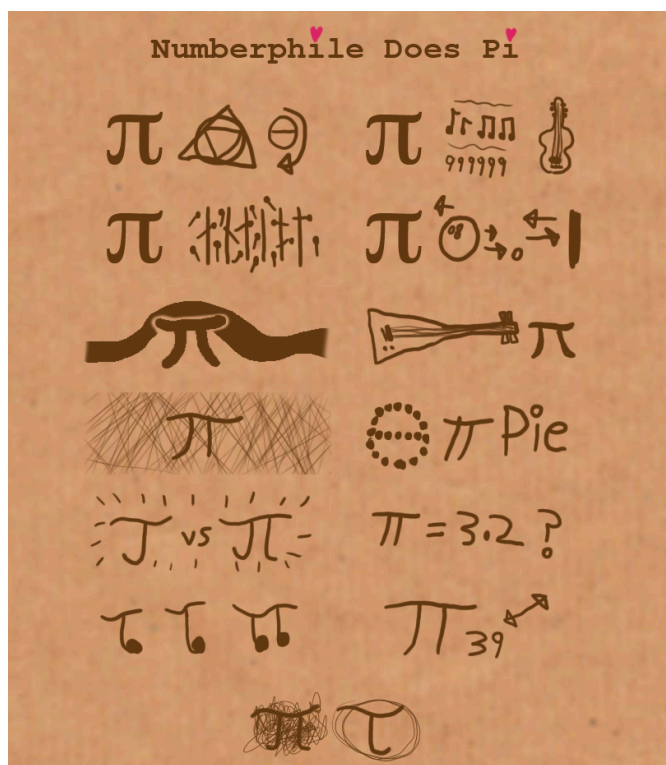 Numberphile Does Pi
π π 999999
π π
π π
π π Pie
τ vs π π = 3.2 ?
τ τ π π 39
π τ